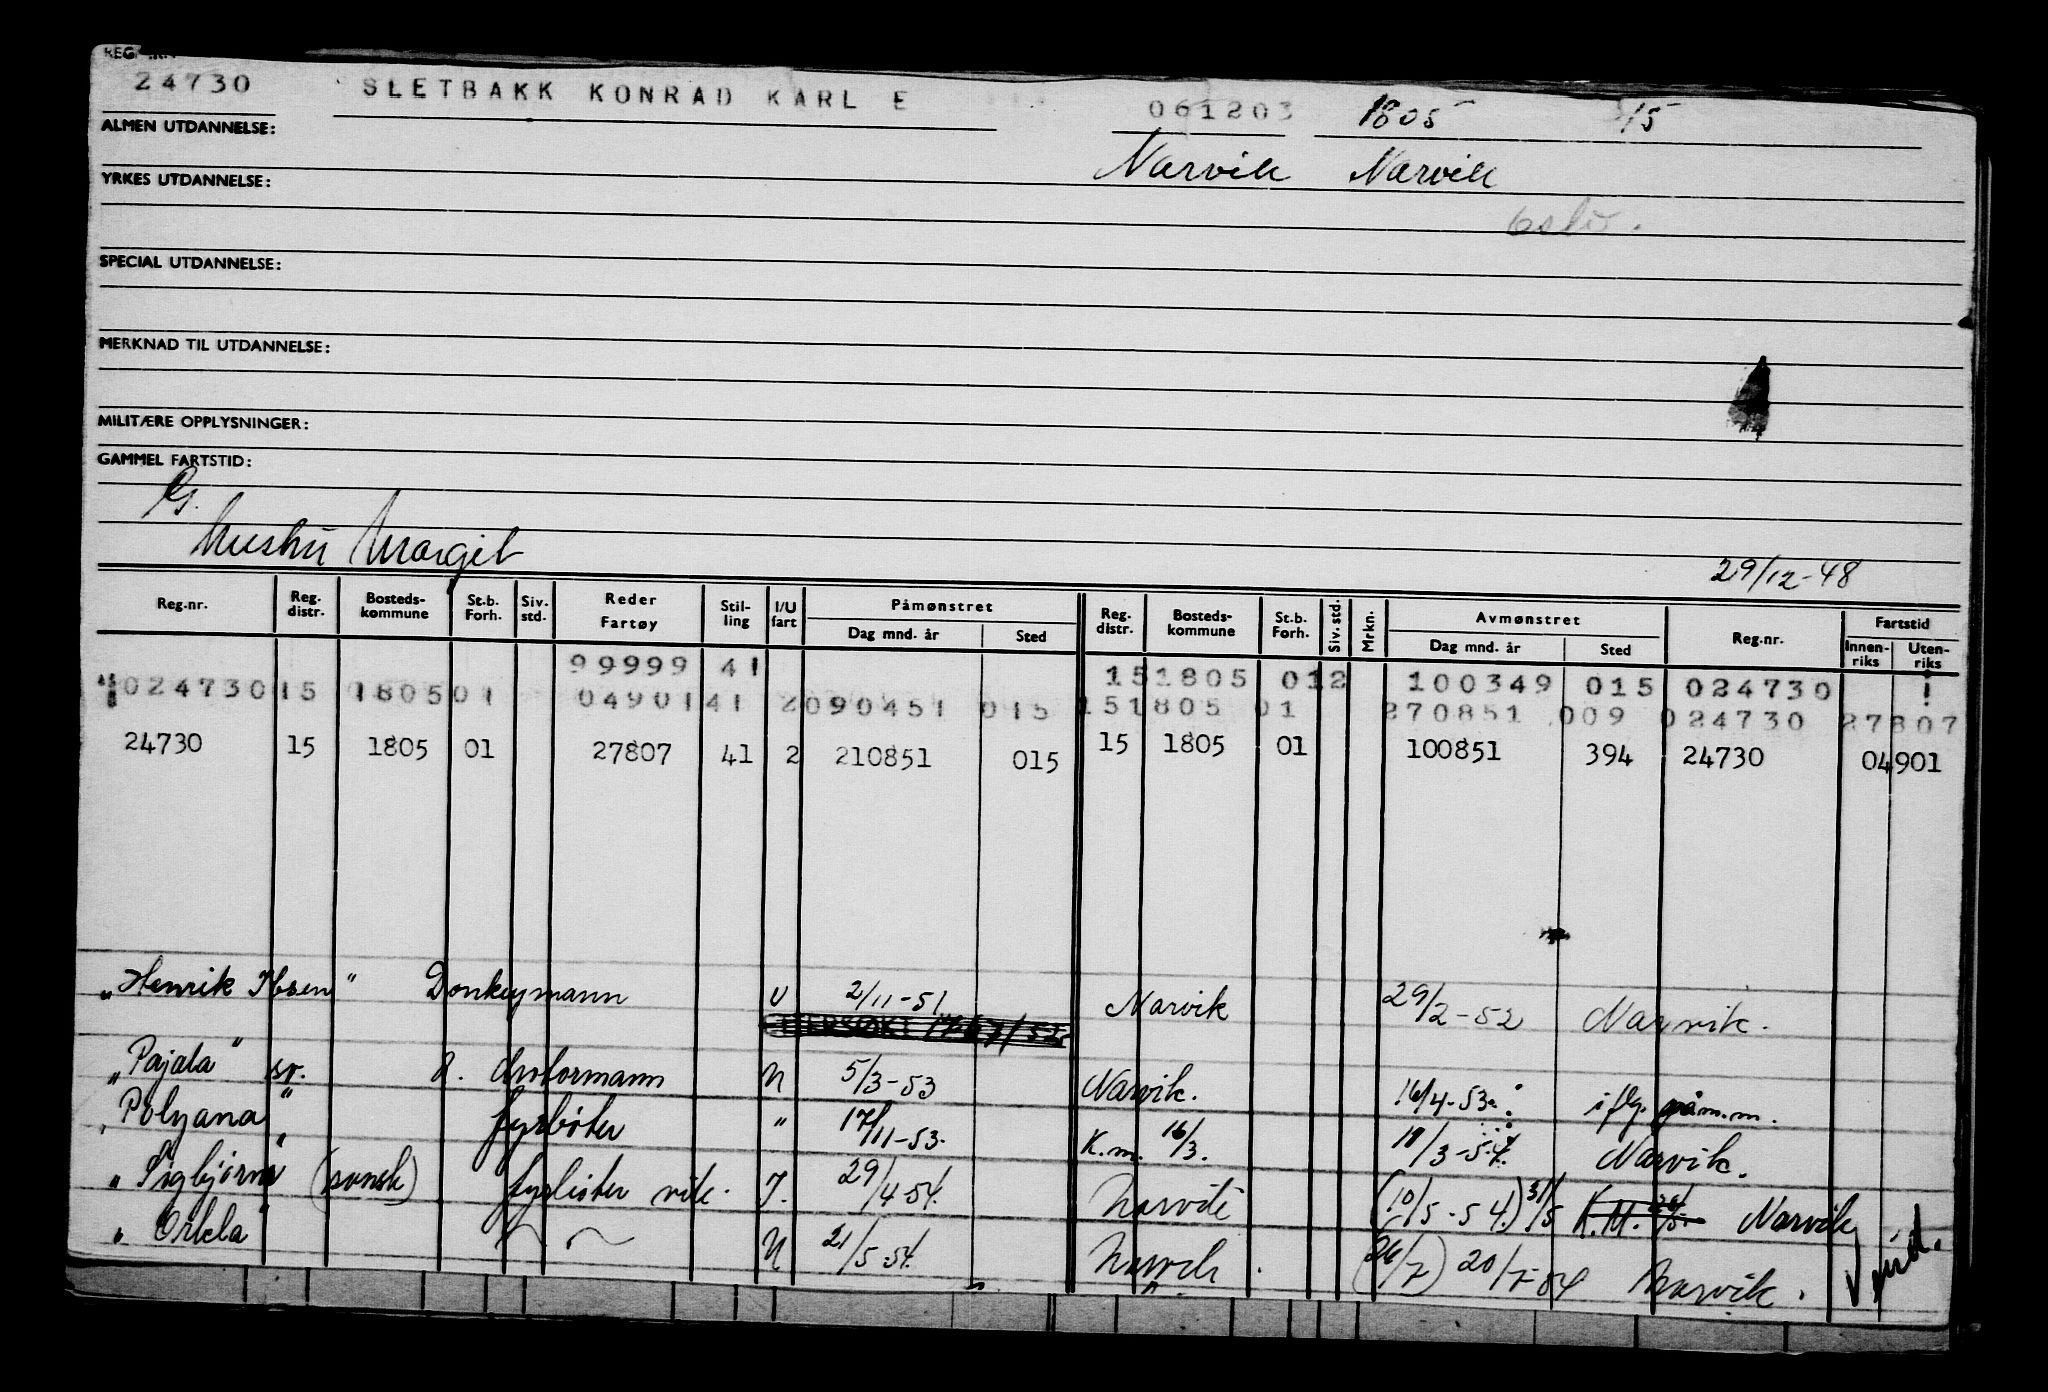 REG. NR.
24730 SLETBAKK KONRAD KARL E 061203 1805 15
ALMEN UTDANNELSE:
Narvik Narvik
YRKES UTDANNELSE:
Oslo.
SPECIAL UTDANNELSE:
MERKNAD TIL UTDANNELSE:
MILITÆRE OPPLYSNINGER:
GAMMEL FARTSTID:
G.
Hustru Margit
29/12-48
Reg.nr. Reg. distr. Bosteds-kommune St.b. Forh. Siv. std. Reder Fartøy Stil-ling I/U fart Påmønstret Dag mnd. år Sted Reg. distr. Bosteds-kommune St.b. Forh. Siv. std. Mrkn. Avmønstret Dag mnd. år Sted Reg.nr. Fartstid Innen-riks Uten-riks
99999 41 151805 012 100349 015 024730
024730 15 1805 01 04901 41 2 090451 015 151805 01 270851 009 024730 27807
24730 15 1805 01 27807 41 2 210851 015 15 1805 01 100851 394 24730 04901
"Henrik Ibsen" Donkeymann U 2/11-51 Narvik 29/2-52 Narvik.
"Pajala" sv. 2. Motormann U 5/3-53 Narvik. 16/4-53 i flg. påm.m.
"Polyana" fyrbøter " 17/11-53. K.m. 16/3. 19/3-54. Narvik.
"Sigbjørn" (svensk) fyrbøter vik. I. 29/4-54. Narvik (10/5-54.) 31/5 K.M. Narvik
"Orkla" U 21/5-54. Narvik. (26/7) 20/7-54 Narvik.